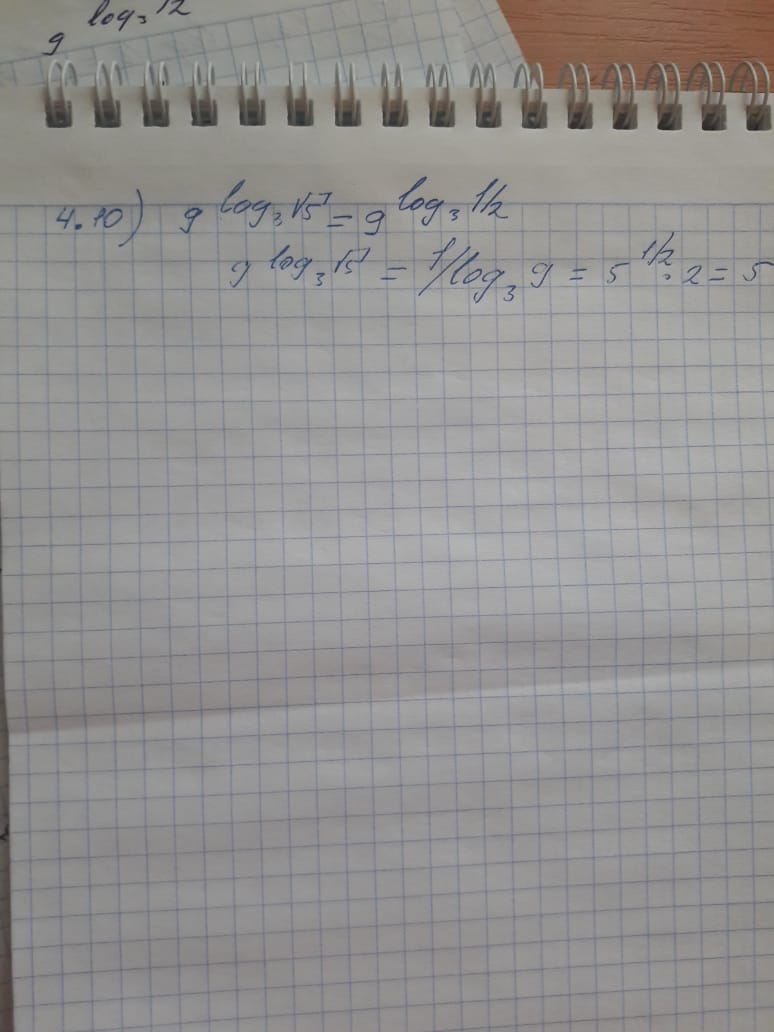 9^log₃ 12
4.10) 9^log₃ √5 = 9^log₃ 1/2
9^log₃ √5 = 1/log₃ 9 = 5^1/2 · 2 = 5